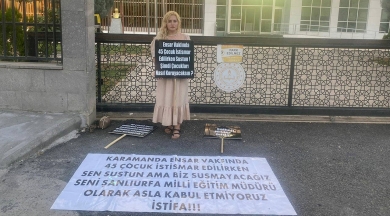 Ensar Vakfında
45 Çocuk İstismar
Edilirken Sustun !
Şimdi Çocukları
Nasıl Koruyacaksın ?
KARAMANDA ENSAR VAKFI'NDA
45 ÇOCUK İSTİSMAR EDİLİRKEN
SEN SUSTUN AMA BİZ SUSMAYACAĞIZ
SENİ ŞANLIURFA MİLLİ EĞİTİM MÜDÜRÜ
OLARAK ASLA KABUL ETMİYORUZ
İSTİFA!!!